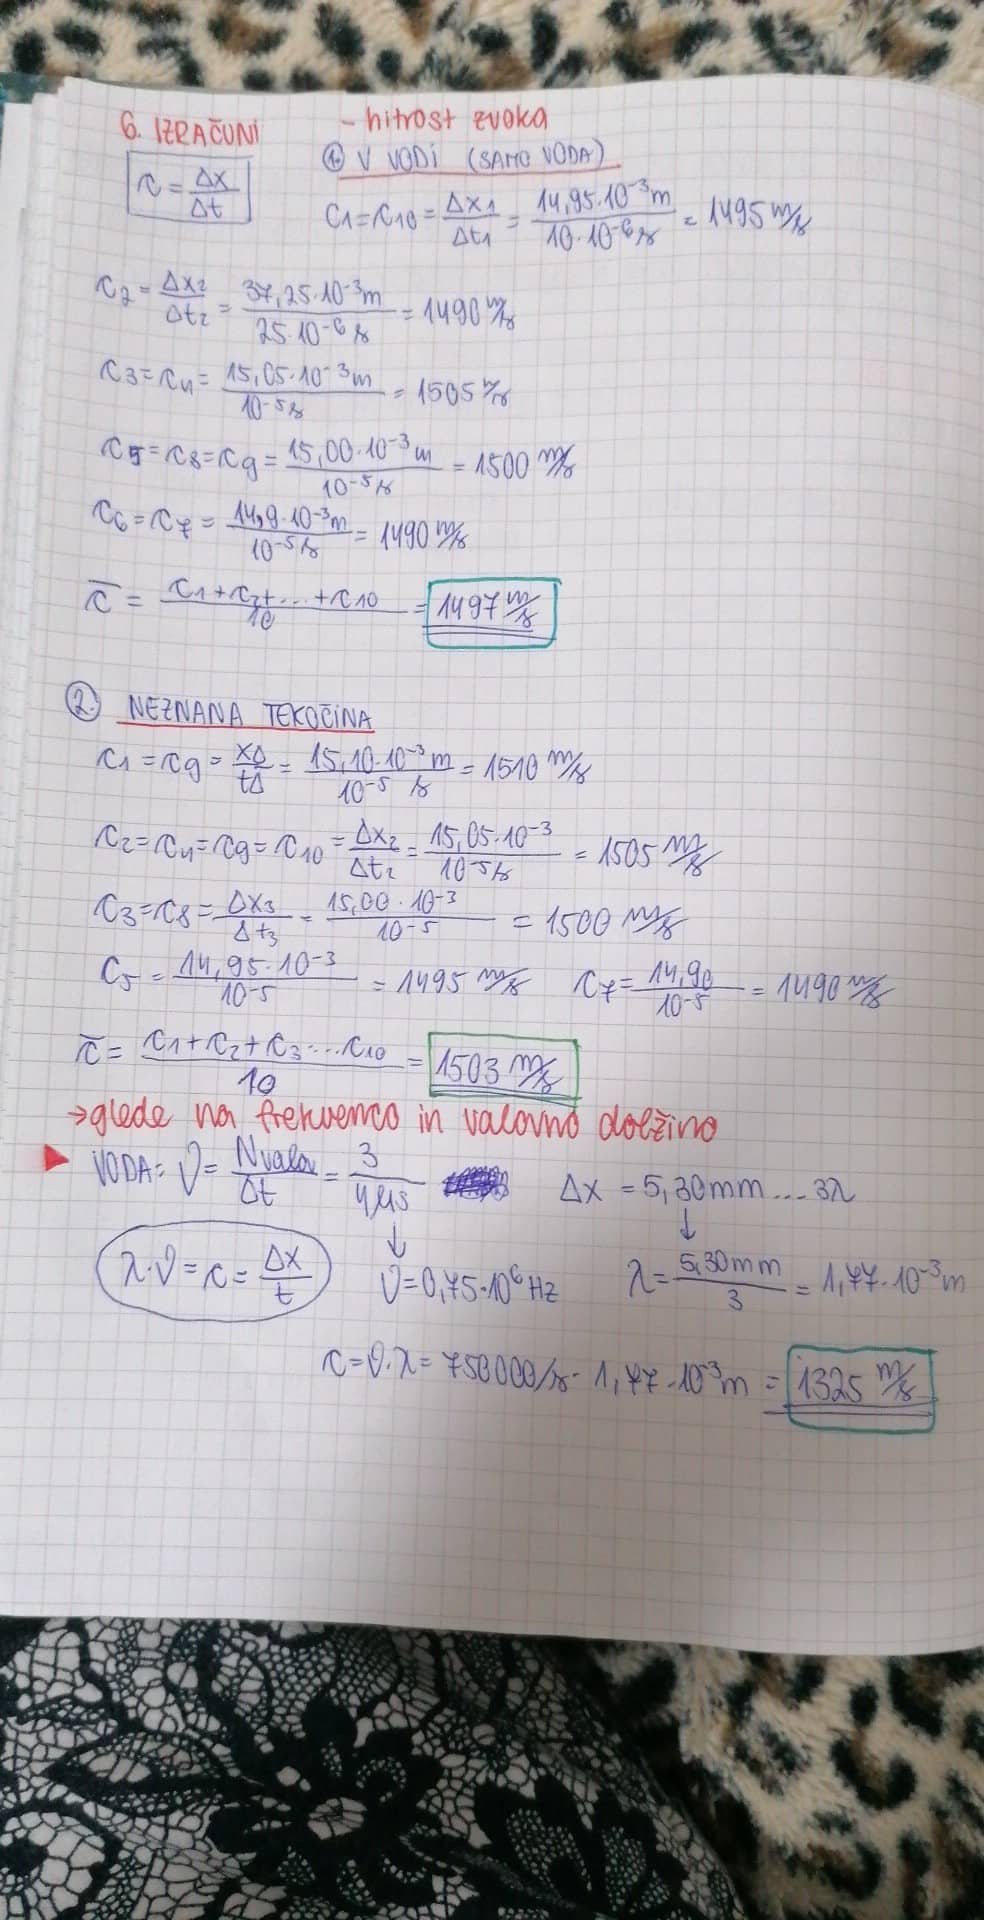 6. IZRAČUNI - hitrost zvoka
① V VODI (SAMO VODA)
c = Δx/Δt
c1 = c10 = Δx1/Δt1 = 14,95·10^-3 m / 10·10^-6 s = 1495 m/s
c2 = Δx2/Δt2 = 37,25·10^-3 m / 25·10^-6 s = 1490 m/s
c3 = c4 = 15,05·10^-3 m / 10^-5 s = 1505 m/s
c5 = c8 = c9 = 15,00·10^-3 m / 10^-5 s = 1500 m/s
c6 = c7 = 14,9·10^-3 m / 10^-5 s = 1490 m/s
c̄ = c1 + c2 + ... + c10 / 10 = 1497 m/s
② NEZNANA TEKOČINA
c1 = c9 = xΔ/tΔ = 15,10·10^-3 m / 10^-5 s = 1510 m/s
c2 = c4 = c9 = c10 = Δx2/Δt2 = 15,05·10^-3 / 10^-5 s = 1505 m/s
c3 = c8 = Δx3/Δt3 = 15,00·10^-3 / 10^-5 = 1500 m/s
c5 = 14,95·10^-3 / 10^-5 = 1495 m/s c7 = 14,90 / 10^-5 = 1490 m/s
c̄ = c1 + c2 + c3 ... c10 / 10 = 1503 m/s
→ glede na frekvenco in valovno dolžino
VODA: ν = Nvalov/Δt = 3/4μs Δx = 5,30mm ... 3λ
↓ ↓
λ·ν = c = Δx/t ν = 0,75·10^6 Hz λ = 5,30mm/3 = 1,77·10^-3 m
c = ν·λ = 750000/s · 1,77·10^-3 m = 1325 m/s